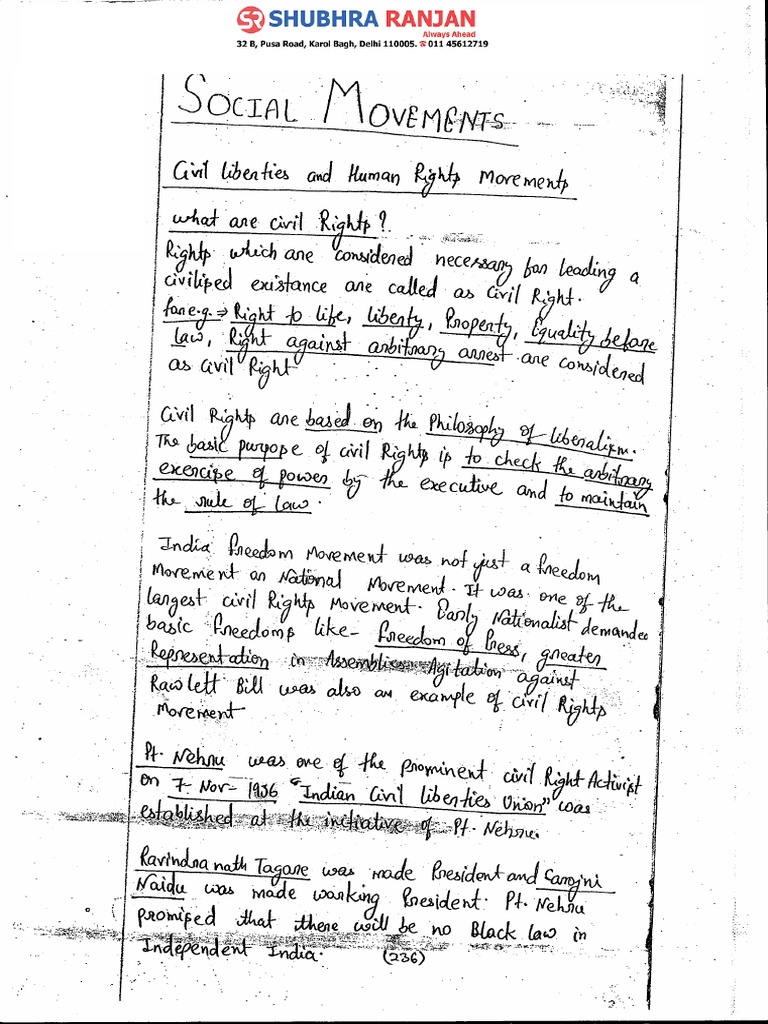 SHUBHRA RANJAN
Always Ahead
32 B, Pusa Road, Karol Bagh, Delhi 110005. ☎ 011 45612719
SOCIAL MOVEMENTS
Civil liberties and Human Rights Movements
what are civil Rights?
Rights which are considered necessary for leading a
civilised existance are called as Civil Right.
for e.g. → Right to life, liberty, Property, Equality before
law, Right against arbitrary arrest are considered
as Civil Right
Civil Rights are based on the Philosophy of liberalism.
The basic purpose of civil Rights is to check the arbitrary
exercise of power by the executive and to maintain
the rule of law.
India Freedom Movement was not just a freedom
Movement or National Movement. It was one of the
largest civil Rights Movement. Early Nationalist demanded
basic Freedoms like - Freedom of Press, greater
Representation in Assemblies Agitation against
Rawlett Bill was also an example of Civil Rights
Movement
Pt. Nehru was one of the prominent civil Right Activist
on 7-Nov-1936 "Indian Civil liberties Union" was
established at the initiative of Pt. Nehru.
Ravindra nath Tagore was made President and Sarojni
Naidu was made working President. Pt. Nehru
promised that there will be no Black law in
Independent India.
(236)